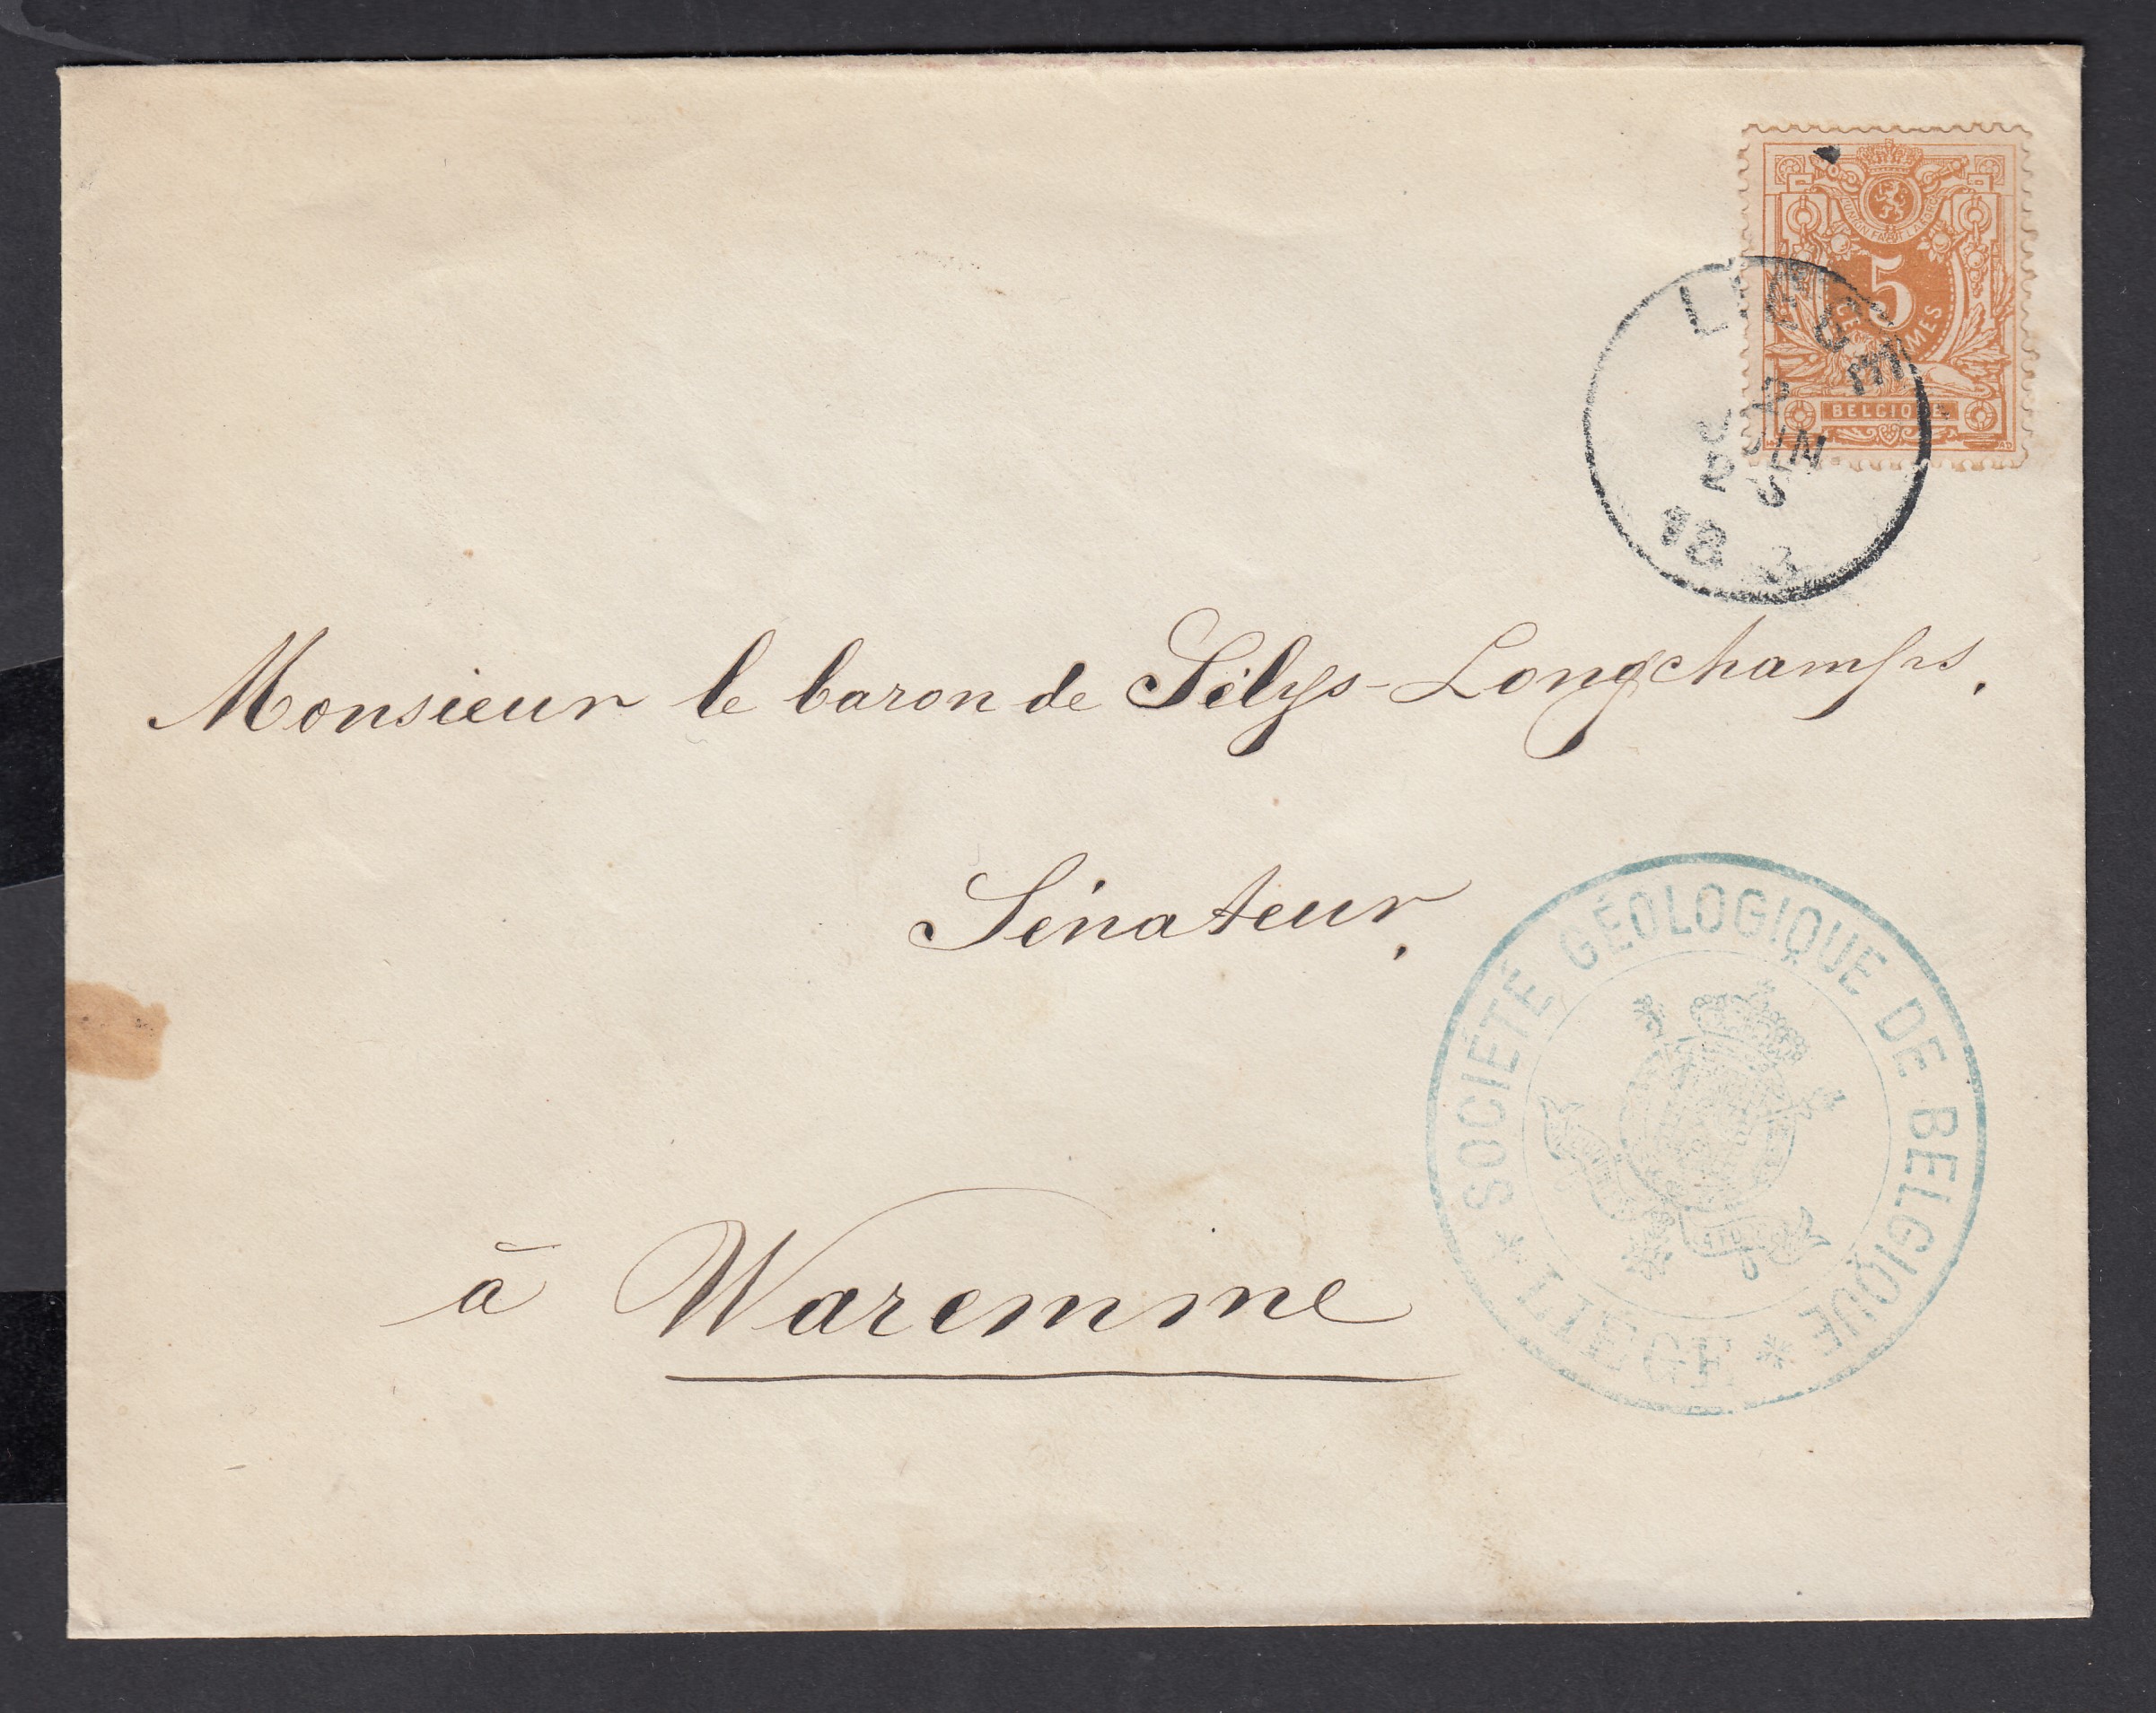 5
CENTIMES
BELGIQUE
LIÈGE
2
JUIN
18 3
Monsieur le baron de Sélys-Longchamps,
Sénateur,
à Waremme
SOCIÉTÉ GÉOLOGIQUE DE BELGIQUE
* LIÈGE *